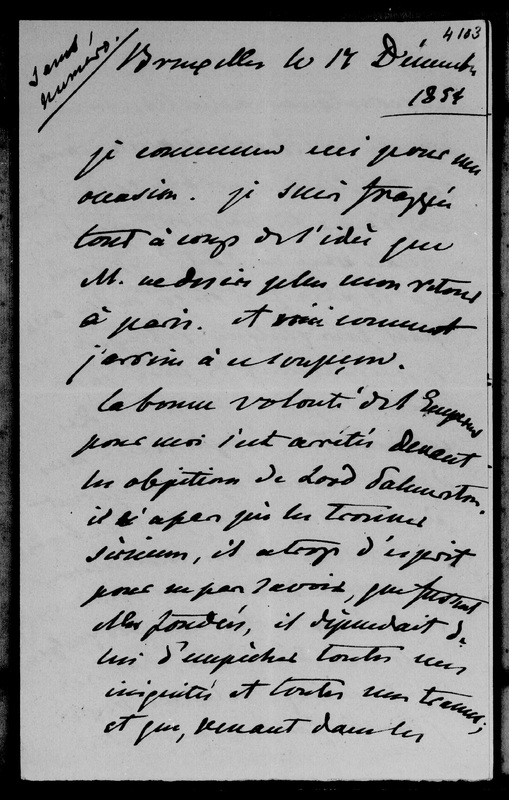 4103
Sans
numero.
Bruxelles le 17 Décembre
1854
je commence ici pour une
occasion. je suis frappée
tout à coup de l'idée que
M. ne desire plus mon retour
à paris. et voici comment
j'arrive à ce soupçon.
la bonne volonté de l'Empereur
pour moi s'est arrêtée devant
les objections de Lord Palmerston.
il n'a pas pu les trouver
serieuses, il a trop d'esprit
pour ne pas savoir, que fussent
elles fondées, il dépendait de
lui d'empêcher toutes mes
iniquités et toutes mes trames;
et que, venant dans les